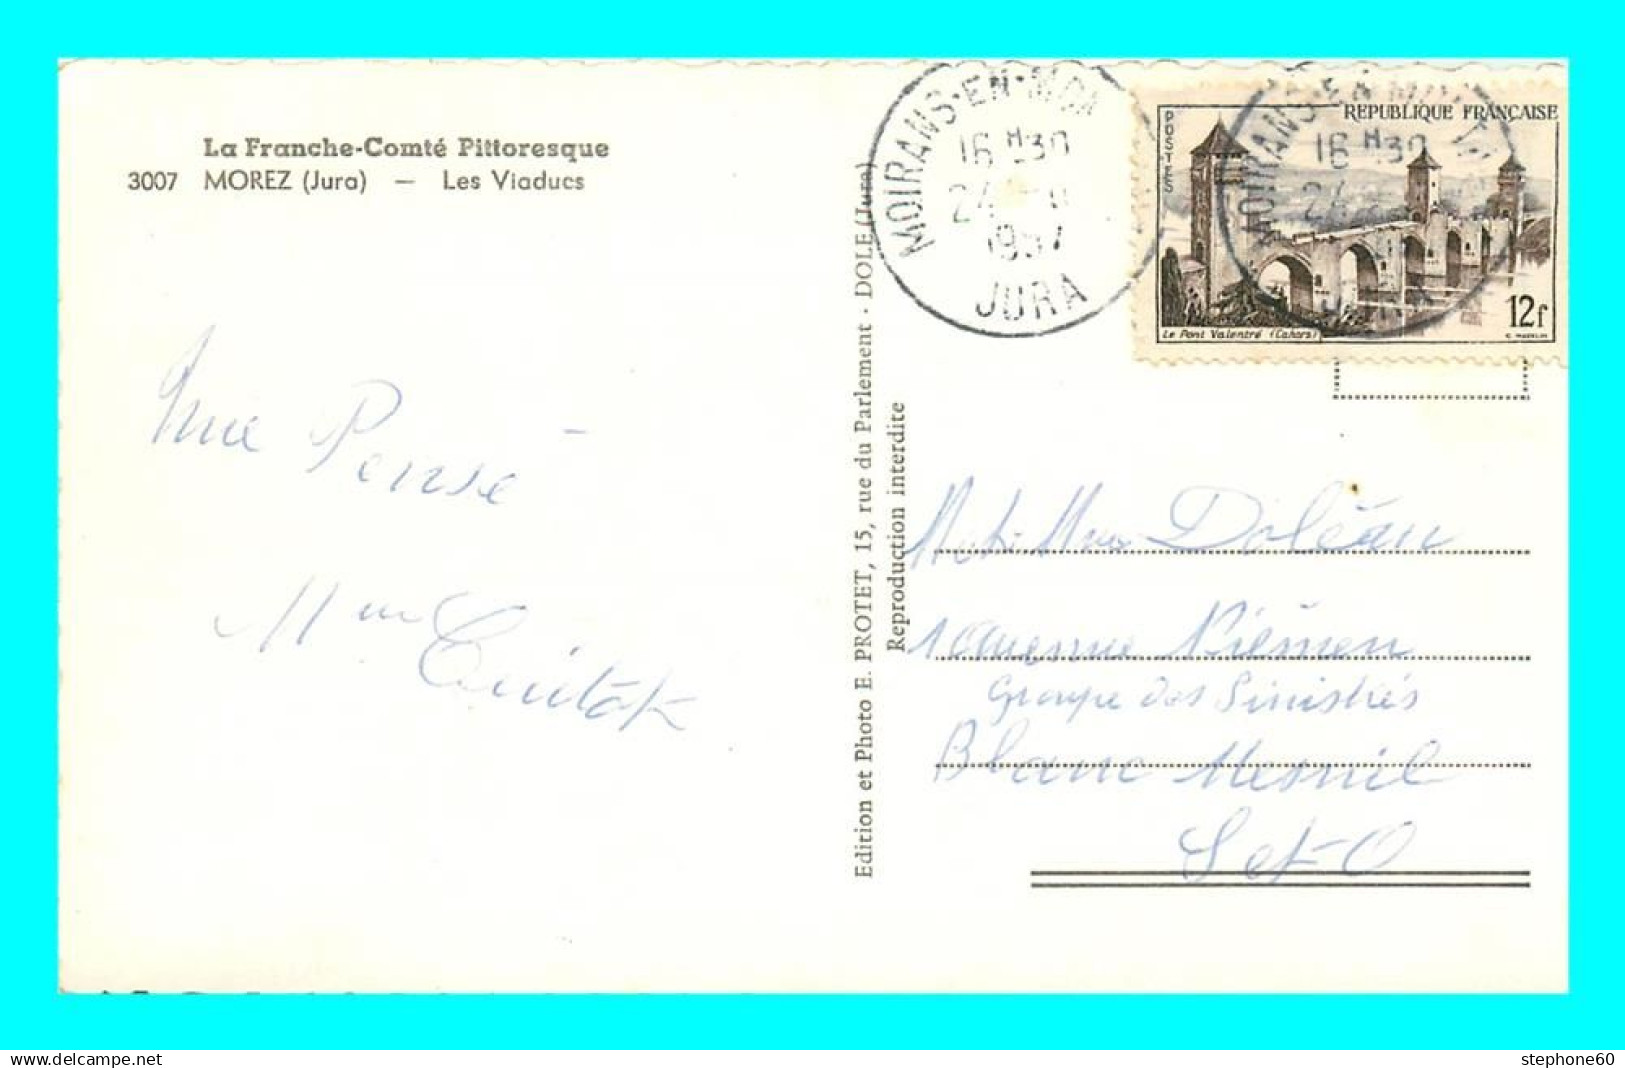 La Franche-Comté Pittoresque
3007 MOREZ (Jura) — Les Viaducs
Une Pensé
Mme
Edition et Photo E. PROTET, 15, rue du Parlement - DOLE (Jura)
Reproduction interdite
MOIRANS-EN-MON
16 H30
24
1957
JURA
REPUBLIQUE FRANÇAISE
POSTES
12f
Le Pont Valentré (Cahors)
MOIRANS-EN-MONT
16 H30
24
M et Mme Doléan
1 Avenue Niémen
Groupe des Sinistrés
Blanc Mesnil
S et O
www.delcampe.net
stephone60